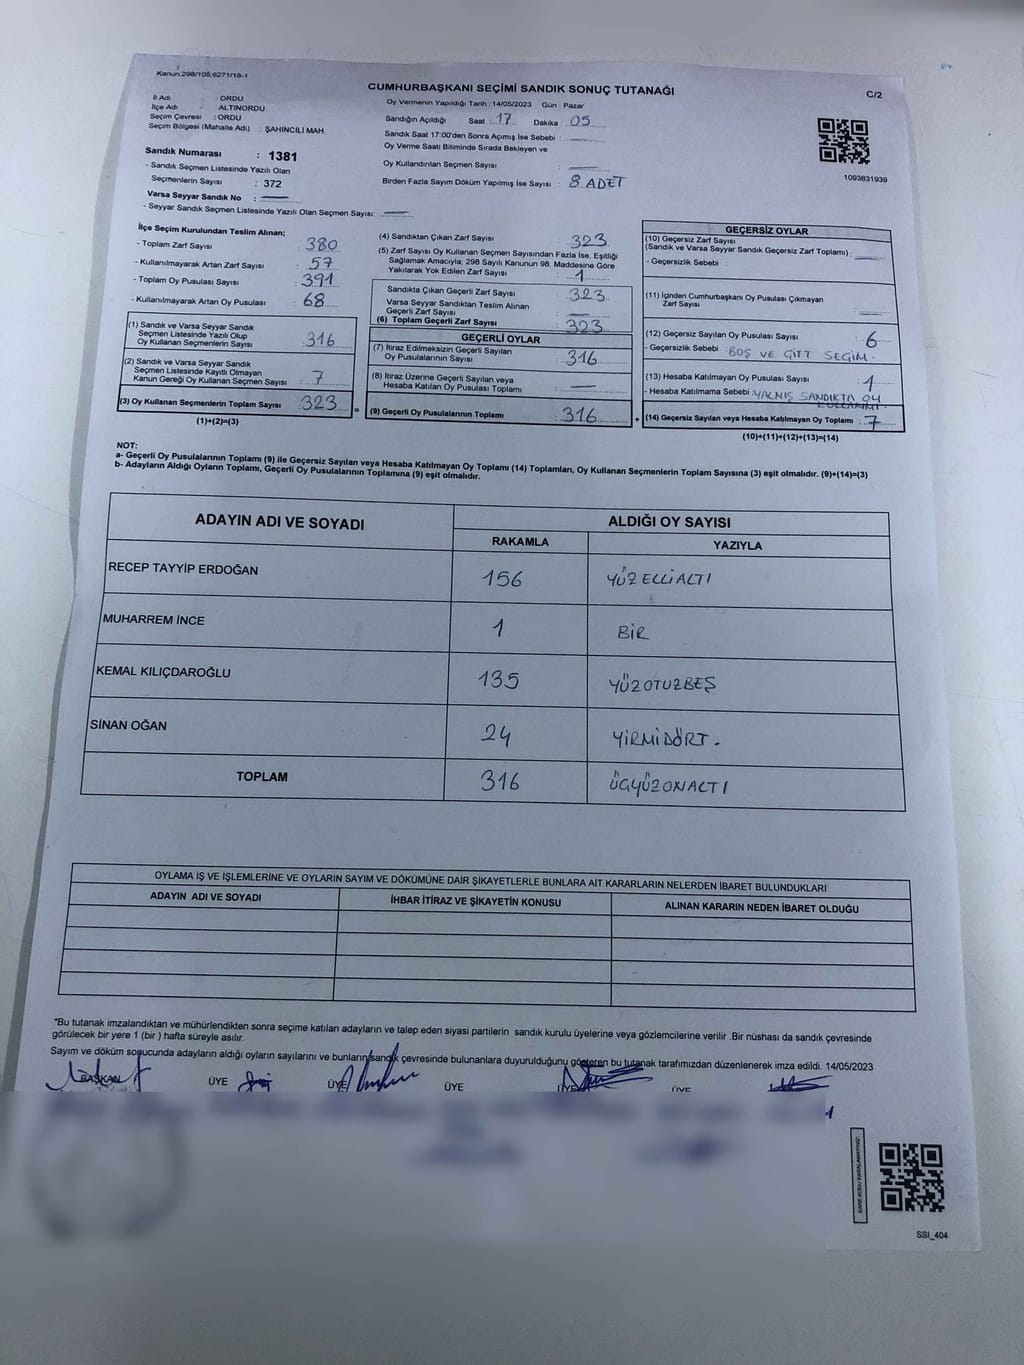 Kanun.298/105;6271/18-1
CUMHURBAŞKANI SEÇİMİ SANDIK SONUÇ TUTANAĞI
C/2
İl Adı : ORDU
İlçe Adı : ALTINORDU
Seçim Çevresi : ORDU
Seçim Bölgesi (Mahalle Adı) : ŞAHİNCİLİ MAH.
Oy Vermenin Yapıldığı Tarih : 14/05/2023 Gün : Pazar
Sandığın Açıldığı Saat : 17 Dakika : 05
Sandık Saat 17:00'den Sonra Açımış İse Sebebi :
Oy Verme Saati Bitiminde Sırada Bekleyen ve
Oy Kullandırılan Seçmen Sayısı :
Birden Fazla Sayım Döküm Yapılmış İse Sayısı : 8 ADET
1093831939
Sandık Numarası : 1381
- Sandık Seçmen Listesinde Yazılı Olan
Seçmenlerin Sayısı : 372
Varsa Seyyar Sandık No :
- Seyyar Sandık Seçmen Listesinde Yazılı Olan Seçmen Sayısı:
İlçe Seçim Kurulundan Teslim Alınan;
- Toplam Zarf Sayısı : 380
- Kullanılmayarak Artan Zarf Sayısı : 57
- Toplam Oy Pusulası Sayısı : 391
- Kullanılmayarak Artan Oy Pusulası : 68
(1) Sandık ve Varsa Seyyar Sandık
Seçmen Listesinde Yazılı Olup
Oy Kullanan Seçmenlerin Sayısı : 316
(2) Sandık ve Varsa Seyyar Sandık
Seçmen Listesinde Kayıtlı Olmayan
Kanun Gereği Oy Kullanan Seçmen Sayısı : 7
(3) Oy Kullanan Seçmenlerin Toplam Sayısı : 323
(1)+(2)=(3)
=
(4) Sandıktan Çıkan Zarf Sayısı : 323
(5) Zarf Sayısı Oy Kullanan Seçmen Sayısından Fazla İse, Eşitliği
Sağlamak Amacıyla, 298 Sayılı Kanunun 98. Maddesine Göre
Yakılarak Yok Edilen Zarf Sayısı : 1
Sandıkta Çıkan Geçerli Zarf Sayısı : 323
Varsa Seyyar Sandıktan Teslim Alınan
Geçerli Zarf Sayısı :
(6) Toplam Geçerli Zarf Sayısı : 323
GEÇERLİ OYLAR
(7) İtiraz Edilmeksizin Geçerli Sayılan
Oy Pusulalarının Sayısı : 316
(8) İtiraz Üzerine Geçerli Sayılan veya
Hesaba Katılan Oy Pusulası Toplamı :
(9) Geçerli Oy Pusulalarının Toplamı : 316
+
GEÇERSİZ OYLAR
(10) Geçersiz Zarf Sayısı
(Sandık ve Varsa Seyyar Sandık Geçersiz Zarf Toplamı) :
- Geçersizlik Sebebi :
(11) İçinden Cumhurbaşkanı Oy Pusulası Çıkmayan
Zarf Sayısı :
(12) Geçersiz Sayılan Oy Pusulası Sayısı : 6
- Geçersizlik Sebebi : BOŞ VE ÇİFT SEÇİM.
(13) Hesaba Katılmayan Oy Pusulası Sayısı : 1
- Hesaba Katılmama Sebebi : YALNIŞ SANDIKTA OY
KULLANIMI.
(14) Geçersiz Sayılan veya Hesaba Katılmayan Oy Toplamı : 7
(10)+(11)+(12)+(13)=(14)
NOT:
a- Geçerli Oy Pusulalarının Toplamı (9) ile Geçersiz Sayılan veya Hesaba Katılmayan Oy Toplamı (14) Toplamları, Oy Kullanan Seçmenlerin Toplam Sayısına (3) eşit olmalıdır. (9)+(14)=(3)
b- Adayların Aldığı Oyların Toplamı, Geçerli Oy Pusulalarının Toplamına (9) eşit olmalıdır.
ADAYIN ADI VE SOYADI
ALDIĞI OY SAYISI
RAKAMLA YAZIYLA
RECEP TAYYİP ERDOĞAN 156 YÜZELLİALTI
MUHARREM İNCE 1 BİR
KEMAL KILIÇDAROĞLU 135 YÜZOTUZBEŞ
SİNAN OĞAN 24 YİRMİDÖRT.
TOPLAM 316 ÜÇYÜZONALTI
OYLAMA İŞ VE İŞLEMLERİNE VE OYLARIN SAYIM VE DÖKÜMÜNE DAİR ŞİKAYETLERLE BUNLARA AİT KARARLARIN NELERDEN İBARET BULUNDUKLARI
ADAYIN ADI VE SOYADI İHBAR İTİRAZ VE ŞİKAYETİN KONUSU ALINAN KARARIN NEDEN İBARET OLDUĞU
*Bu tutanak imzalandıktan ve mühürlendikten sonra seçime katılan adayların ve talep eden siyasi partilerin sandık kurulu üyelerine veya gözlemcilerine verilir .Bir nüshası da sandık çevresinde
görülecek bir yere 1 (bir ) hafta süreyle asılır.
Sayım ve döküm sonucunda adayların aldığı oyların sayılarını ve bunların sandık çevresinde bulunanlara duyurulduğunu gösteren bu tutanak tarafımızdan düzenlenerek imza edildi. 14/05/2023
BAŞKAN ÜYE ÜYE ÜYE ÜYE ÜYE
KARE KODU KARALAMAYINIZ!
SSI_404